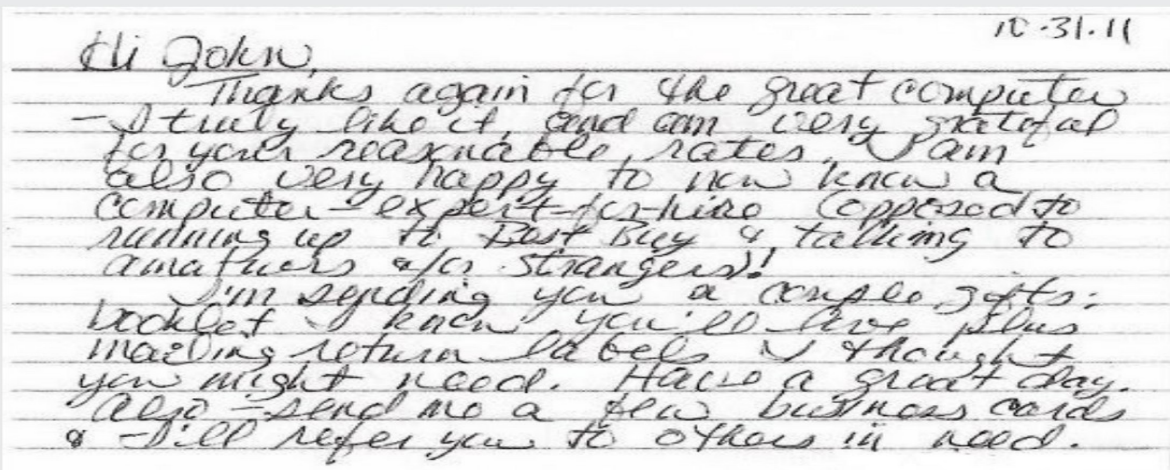 10-31-11
Hi John,
Thanks again for the great computer
- I truly like it, and am very grateful
for your reasonable rates. I am
also very happy to now know a
computer-expert-for-hire (opposed to
running up to Best Buy & talking to
amatuers &/or strangers)!
I'm sending you a couple gifts:
booklet I know you'll love plus
mailing return labels I thought
you might need. Have a great day.
Also - send me a few business cards
& I'll refer you to others in need.